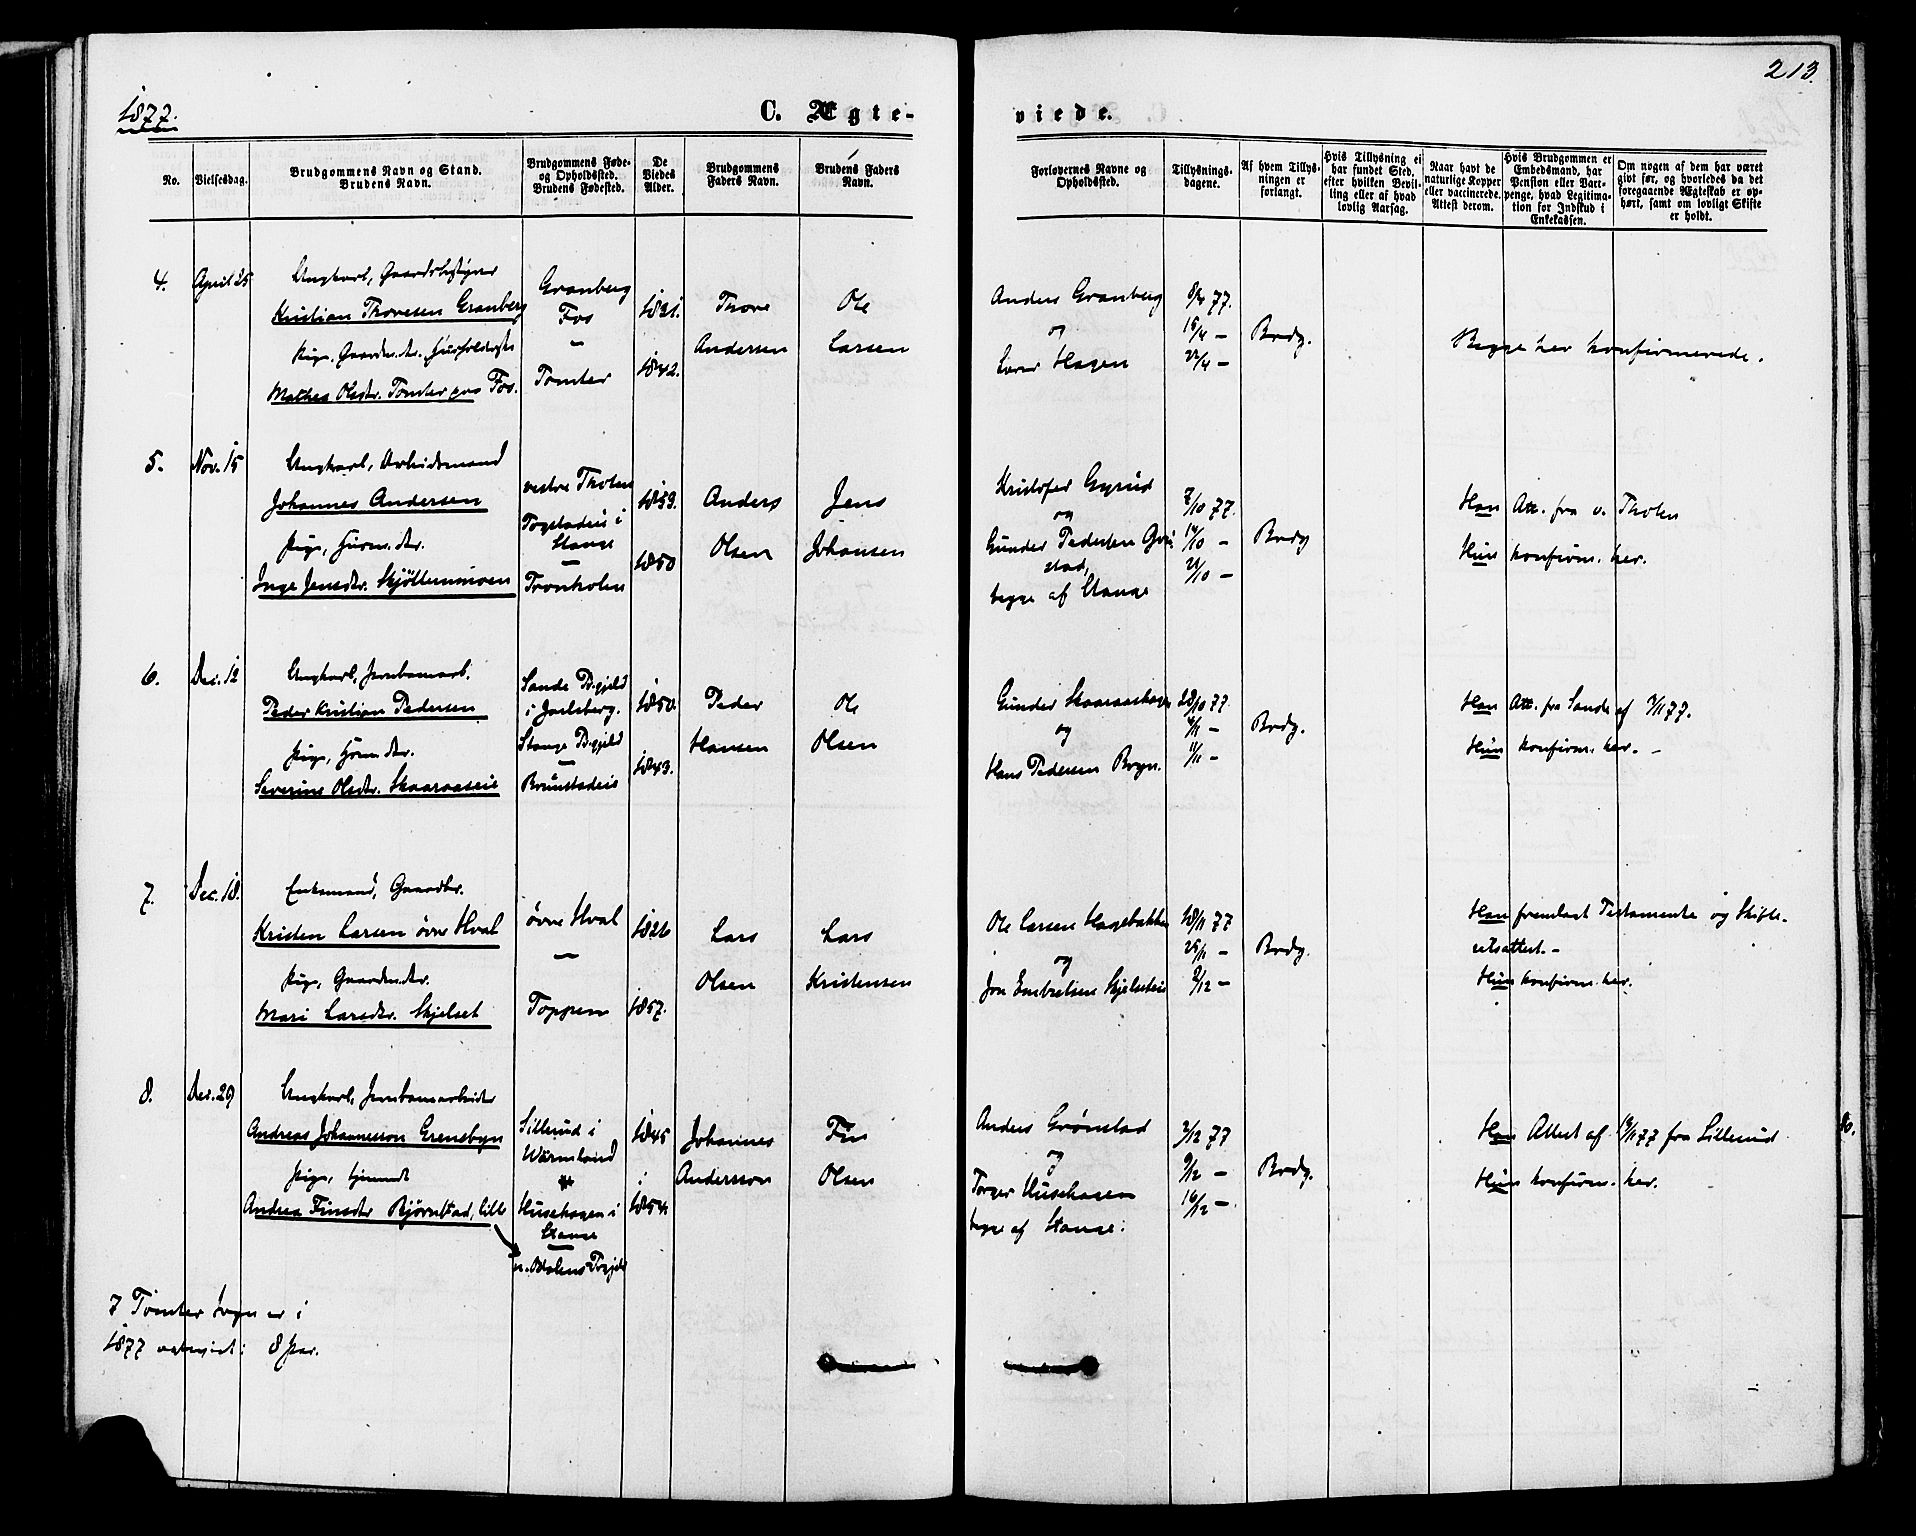 1877.
C. Ægte-
viede.
213.
No.
Vielsesdag.
Brudgommens Navn og Stand.
Brudens Navn.
Brudgommens Føde-
og Opholdssted.
Brudens Fødested.
De
Viedes
Alder.
Brudgommens
Faders Navn.
Brudens Faders
Navn.
Forlovernes Navne og
Opholdssted.
Tillysnings-
dagene.
Af hvem Tillys-
ningen er
forlangt.
Hvis Tillysning ei
har fundet Sted,
efter hvilken Bevil-
ling eller af hvad
lovlig Aarsag.
Naar havt de
naturlige Kopper
eller vaccinerede.
Attest derom.
Hvis Brudgommen er
Embedsmand, har
Pension eller Vart-
penge, hvad Legitima-
tion for Indskud i
Enkekassen.
Om nogen af dem har været
givt før, og hvorledes da det
foregaaende Ægteskab er op-
hørt, samt om lovligt Skifte
er holdt.
4. April 25
Ungkarl, Gaardbestyrer
Kristian Thoresen Granberg
Pige, Gaardm.dtr.
Mathea Olsdtr. Tomter paa Fos.
Granberg
Fos
—
Tomter
1821.
1842.
Thore
Andersen
Ole
Larsen
Anders Granberg
og
Lars Hagen
8/4 77.
15/4 —
22/4 —
Brdg.
Begge her konfirmerede.
5. Nov. 15
Ungkarl, Arbeidsmand
Johannes Andersen
Pige, Husm.dtr.
Inge Jensdtr. Skjöttenmoen
vestre Thoten
Stange
—
Tronholen
1853.
1850
Anders
Olsen
Jens
Johansen
Kristofer Gyrud
og
Gunder Pedersen
stad,
begge af Stange
7/10 77.
14/10 —
21/10 —
Brdg
Han Att. fra v. Thoten
Hun konfirm. her.
6. Dec. 12
Ungkarl, Jernbanearb.
Peder Kristian Pedersen
Pige, Husm.dtr.
Severine Olsdtr. Skaaraaseie
Sande Pgjeld
i Jarlsberg.
Stange Pgjeld
—
Brunstadeie
1850.
1843.
Peder
Hansen
Ole
Olsen
Gunder Skaaraashagen
og
Hans Pedersen Bryn.
28/10 77.
4/11 —
11/11 —
Brdg.
Han Att. fra Sande af 7/11 77.
Hun konfirm. her. —
7. Dec. 18.
Enkemand, Gaardbr.
Kristen Larsen övre Hval
Pige, Gaardm.dtr.
Mari Larsdtr. Skjelset
övre Hval
—
Toppen
1826
1857.
Lars
Olsen
Lars
Kristensen
Ole Larsen Hagebakken
og
Jon Embretsen Skjelseteie
18/11 77
25/11 —
2/12 —
Brdg.
Han fremlagt Testamente og Skifte-
attest. —
Hun konfirm. her.
8. Dec. 29
Ungkarl, Jernbanearbeider
Andreas Johannesson Grensbyn
Pige, hjemme
Andrea Finsdtr Björnstad, lille
Sillerud i
Wärmland
Husehagen i
Stange
—
n. Odalens Pgjeld
1845
1854.
Johannes
Andersson
Fin
Olsen
Anders Grønstad
og
Torger Husehagen
begge af Stange.
2/12 77
9/12 —
16/12 —
Brdg.
Han Attest af 19/11 77 fra Sillerud
Hun konfirm. her.
I Tomter Sogn er i
1877 ægteviet: 8 Par.